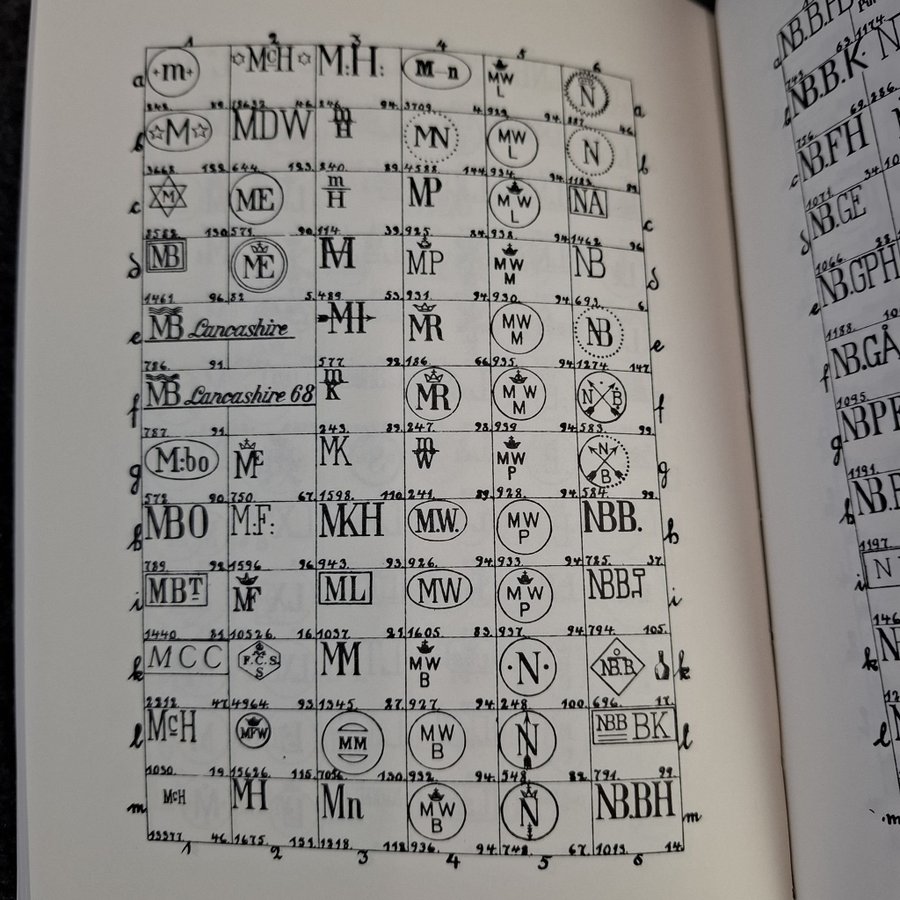 1 2 3 4 5 6
a +m+ ☆McH☆ M:H: M–n MW L N a
94. 3709. 4. 929. 94. 887. 46.
b ☆M☆ MDW m H MN MW L N b
3668 122. 644. 123. 240. 89. 4588 144. 934. 94. 1183. 89.
c M ME m H MP MW L NA c
8582 130. 571. 90. 114 39. 925 84. 938. 94. 1462 96.
d MB ME MH MP MW M NB d
1461 96. 82 5. 489 53. 931 94. 930 94. 692. 6.
e MB Lancashire MI MR MW M NB e
786. 91. 577 92. 186. 66. 935. 94. 1274 147.
f MB Lancashire 68 m K MR MW M N B f
787 91. 243. 89. 247. 98. 939 94. 583. 99.
g M:bo ME MK m W MW P N B g
572 90. 750. 67. 1598. 110. 241. 89. 928. 94. 584 99.
h MBO M:F: MKH M.W. MW P NBB. h
789. 92. 1596 96. 943 93. 926. 94. 933. 94. 785. 37.
i MBT MF ML MW MW P NBB i
1440 81. 10526. 16. 1037. 21. 1605 83. 937. 94. 794. 105.
k MCC F.C.S. S MM MW B ·N· NBB k
2212 47. 4964 93. 1345 27. 927 94. 248 100. 696. 17.
l McH MPW MM MW B N NBB BK l
1030. 19. 15626. 115. 7056 130. 932. 94. 548 82. 791. 99.
m McH MH Mn MW B N NB.BH m
13377 46. 1675. 151. 1218. 118. 936. 94. 748. 67. 1013. 14.
1 2 3 4 5 6
NB.B.K
NB.FH
NB.GE
NB.GPH
NB.GÅ